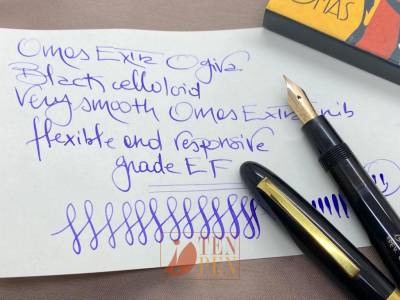 OMAS
Omas Extra Ogiva
Black celloloid
very smooth Omas Extra nib
flexible and responsive
grade EF
TEN
PEN